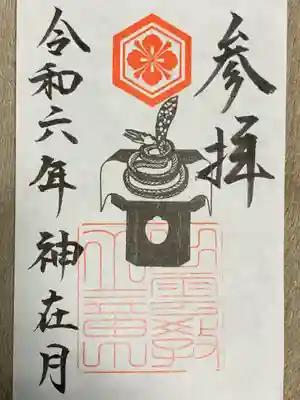 参拝
令和六年 神在月